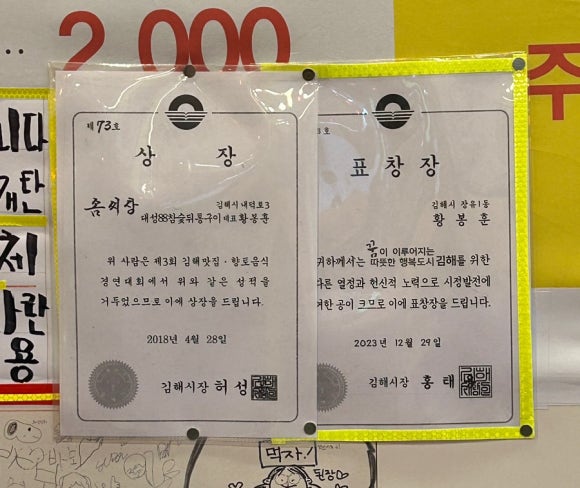 2,000
주
니다
개탄
체
사란
용
제 73 호
상 장
솜씨상
김해시 내덕로3
대성88참숯뒤통구이 대표 황봉훈
위 사람은 제3회 김해맛집 · 향토음식
경연대회에서 위와 같은 성적을
거두었으므로 이에 상장을 드립니다.
2018년 4월 28일
김해시장 허성
3호
표 창 장
김해시 장유1동
황 봉 훈
귀하께서는 꿈이 이루어지는 따뜻한 행복도시김해를 위한
다른 열정과 헌신적 노력으로 시정발전에
여한 공이 크므로 이에 표창장을 드립니다.
2023년 12월 29일
김해시장 홍 태
먹자!
된장